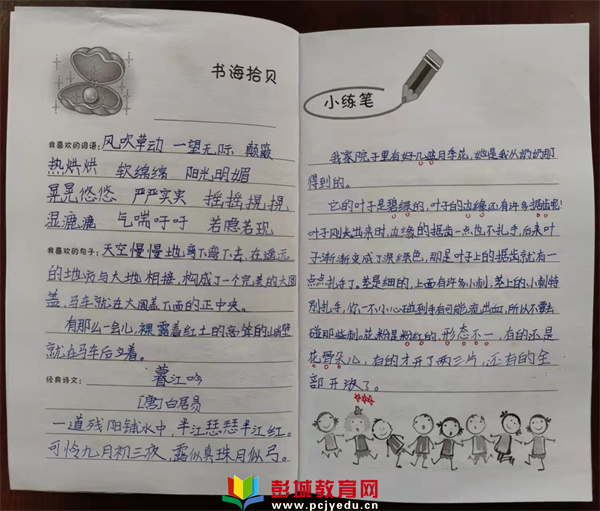 书海拾贝
我喜欢的词语:风吹草动 一望无际 颠簸
热烘烘 软绵绵 阳光明媚
晃晃悠悠 严严实实 摇摇摆摆
湿漉漉 气喘吁吁 若隐若现
我喜欢的句子:天空慢慢地弯下弯下去,在遥远
的地方与大地相接,构成了一个完美的大圆
盖,马车就在大圆盖下面的正中央。
有那么一会儿,裸露着红土的高耸的山崖壁
就在马车后立着。
经典诗文:暮江吟
[唐]白居易
一道残阳铺水中,半江瑟瑟半江红。
可怜九月初三夜,露似真珠月似弓。
小练笔
我家院子里有好几株月季花,她是我从奶奶那
得到的。
它的叶子是碧绿的,叶子的边缘还有许多锯齿呢
叶子刚长出来时,边缘的锯齿一点也不扎手,后来叶
子渐渐变成了深绿色,那是叶子上的锯齿就有一
点点扎手了。茎是细的,上面有许多小刺,茎上的小刺特
别扎手,你一不小心碰到手有可能流出血,所以不要去
碰那些刺。花粉是粉红的,形态不一,有的还是
花骨朵儿,有的才开了两三片,还有的全
部开放了。
彭城教育网
www.pcjyedu.cn